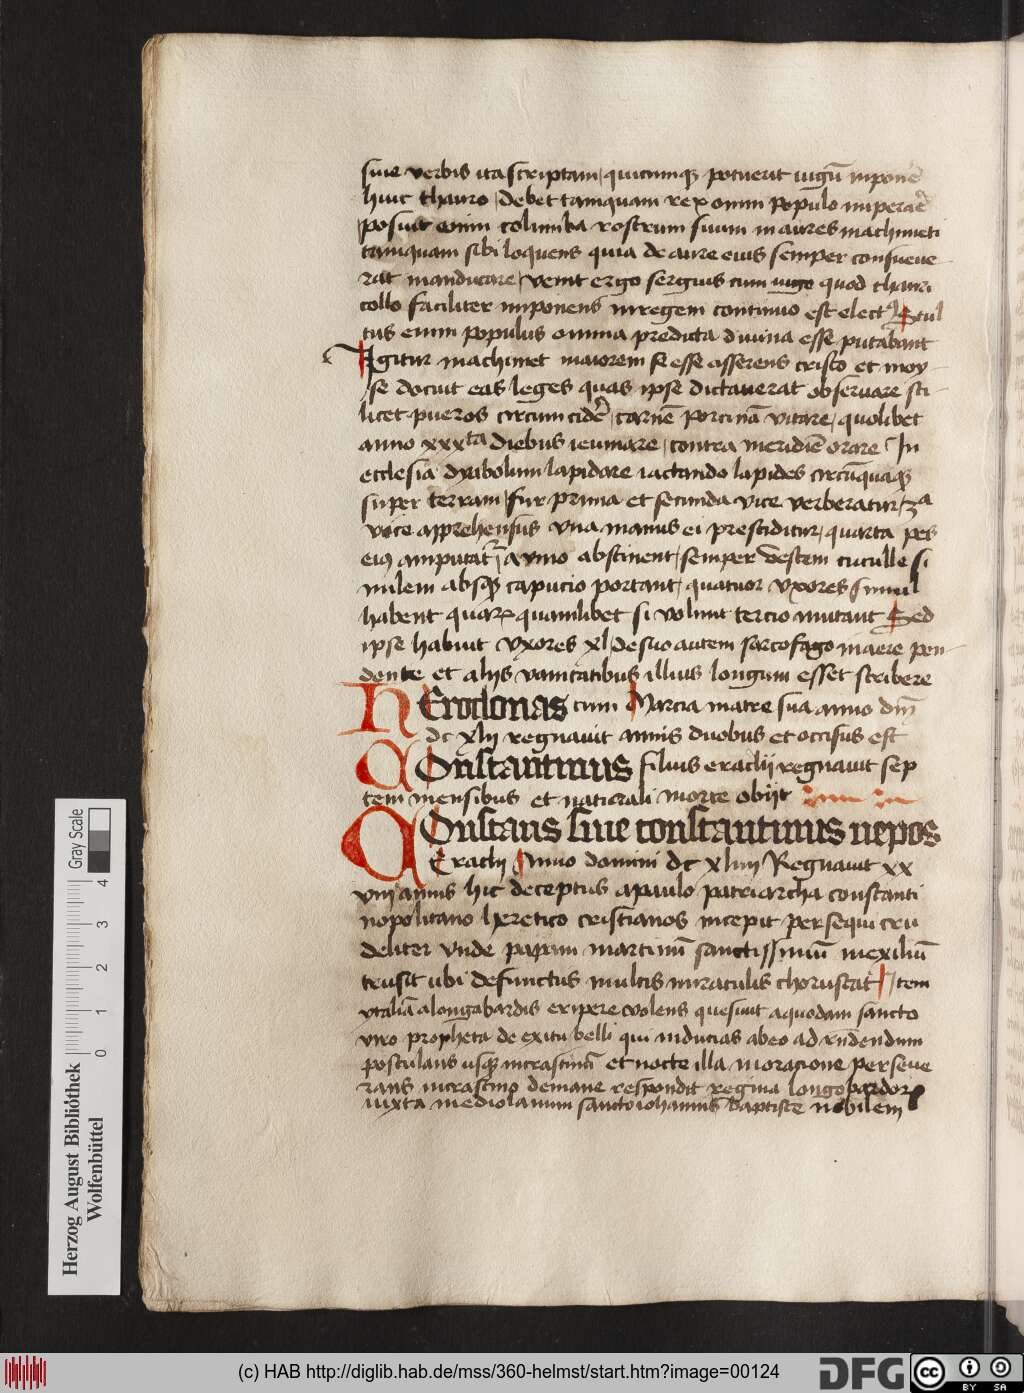 siue verbis ita scriptam quicumqꝫ potuerit iugū inponē
huic thauro debet tamquam rex omni populo imperaē
posuit enim columba rostrum suum in aures machmeti
tamquam sibi loquens quia de aure eius semper consueue
rat manducare venit ergo sergius cum iugo quod thauri
collo faciliter inponens in regem continuo est elect⁹ Stul
tus enim populus omnia predicta diuina esse putabant
Igitur machmet maiorem se esse asserens cristo et moy
se docuit eas leges quas ipse dictauerat obseruare sci
licet pueros circumcidē carnē porcinā vitare quolibet
anno xxxta diebus ieiunare contra meridiē orare In
ecclesia dyabolum lapidare iactando lapides circūquaqꝫ
super terram fur prima et secunda vice verberatur 3a
vice apprehensus vna manus ei presciditur quarta pes
eiꝰ amputat̄ a vino abstinent semper vestem cuculle si
milem absqꝫ capucio portant quatuor vxores simul
habent quarꝝ quamlibet si volunt tercio mutant Sed
ipse habuit vxores xl de suo autem sarcofago in aere pen
dente et alijs vanitatibus illius longum esset scribere
HEroclonas cum Marcia matre sua anno dnī
dc xlij regnauit annis duobus et occisus est
COnstantinus filius eraclij regnauit sep
tem mensibus et naturali morte obijt
COnstans siue constantinus nepos
Eraclij Anno domini dc xliiij Regnauit xx
viij annis hic deceptus a paulo patriarcha constanti
nopolitano heretico cristianos incepit persequi cru
deliter vnde papam martinū sanctissimū in exiliū
trusit ubi defunctus multis miraculis choruscat Item
ytaliā a longabardis eripere volens quesiuit a quodam sancto
viro propheta de exitu belli qui inducias ab eo ad rn̄dendum
postulans usqꝫ in crastinū et nocte illa in oracione perseue
rans in crastino de mane respondit regina longobardorꝝ
iuxta mediolanum sancto iohannis baptiste nobilem
Herzog August Bibliothek
Wolfenbüttel
Gray Scale
0 1 2 3 4
(c) HAB http://diglib.hab.de/mss/360-helmst/start.htm?image=00124
DFG
cc BY SA